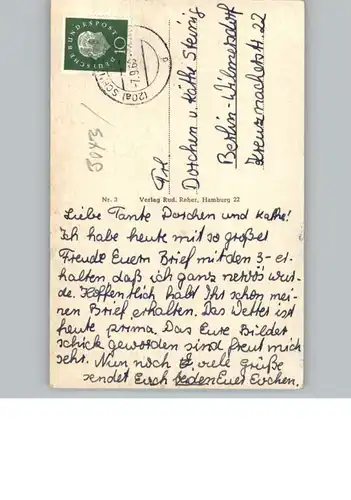 DEUTSCHE BUNDESPOST
10
(20a)
-7.9.60
b
3043/
Frl.
Dorchen u. Käthe Steinig
Berlin-Wilmersdorf
Kreuznacherstr. 22
Nr. 3 Verlag Rud. Reher, Hamburg 22
Liebe Tante Dorchen und Käthe!
Ich habe heute mit so großer
Freude Euern Brief mit den 3-er-
halten, daß ich ganz nervös wur-
de. Hoffentlich habt Ihr schon mei-
nen Brief erhalten. Das Wetter ist
heute prima. Das Eure Bilder
schick geworden sind freut mich
sehr. Nun noch viele Grüße
sendet Euch beden Euer Evchen.